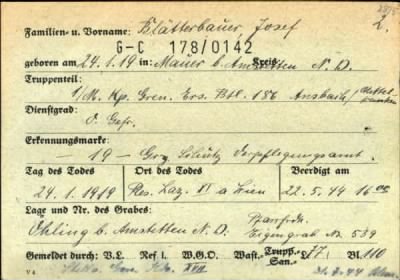 2.
Familien- u. Vorname: Blätterbauer, Josef
G-C 178/0142
geboren am 24.1.19 in: Mauer b. Amstetten N.D.
Kreis
Truppenteil:
1/M. Kp. Gren. Ers. Btl. 186 Ansbach/Mittelfranken
Dienstgrad:
O. Gefr.
Erkennungsmarke:
- 19 - Verpflegungsamt.
Tag des Todes Ort des Todes Beerdigt am
24.1.1919 Res. Laz. XI a Wien 22.5.44 16 00
Lage und Nr. des Grabes:
Öhling b. Amstetten N.D. Pfarrfrdh.
Eigengrab Nr. 539
Gemeldet durch: V.L. Ref i. W.G.O. Wast.- Trupp.- San.- L 77 Bl. 110
XVII 31.7.44
V 4